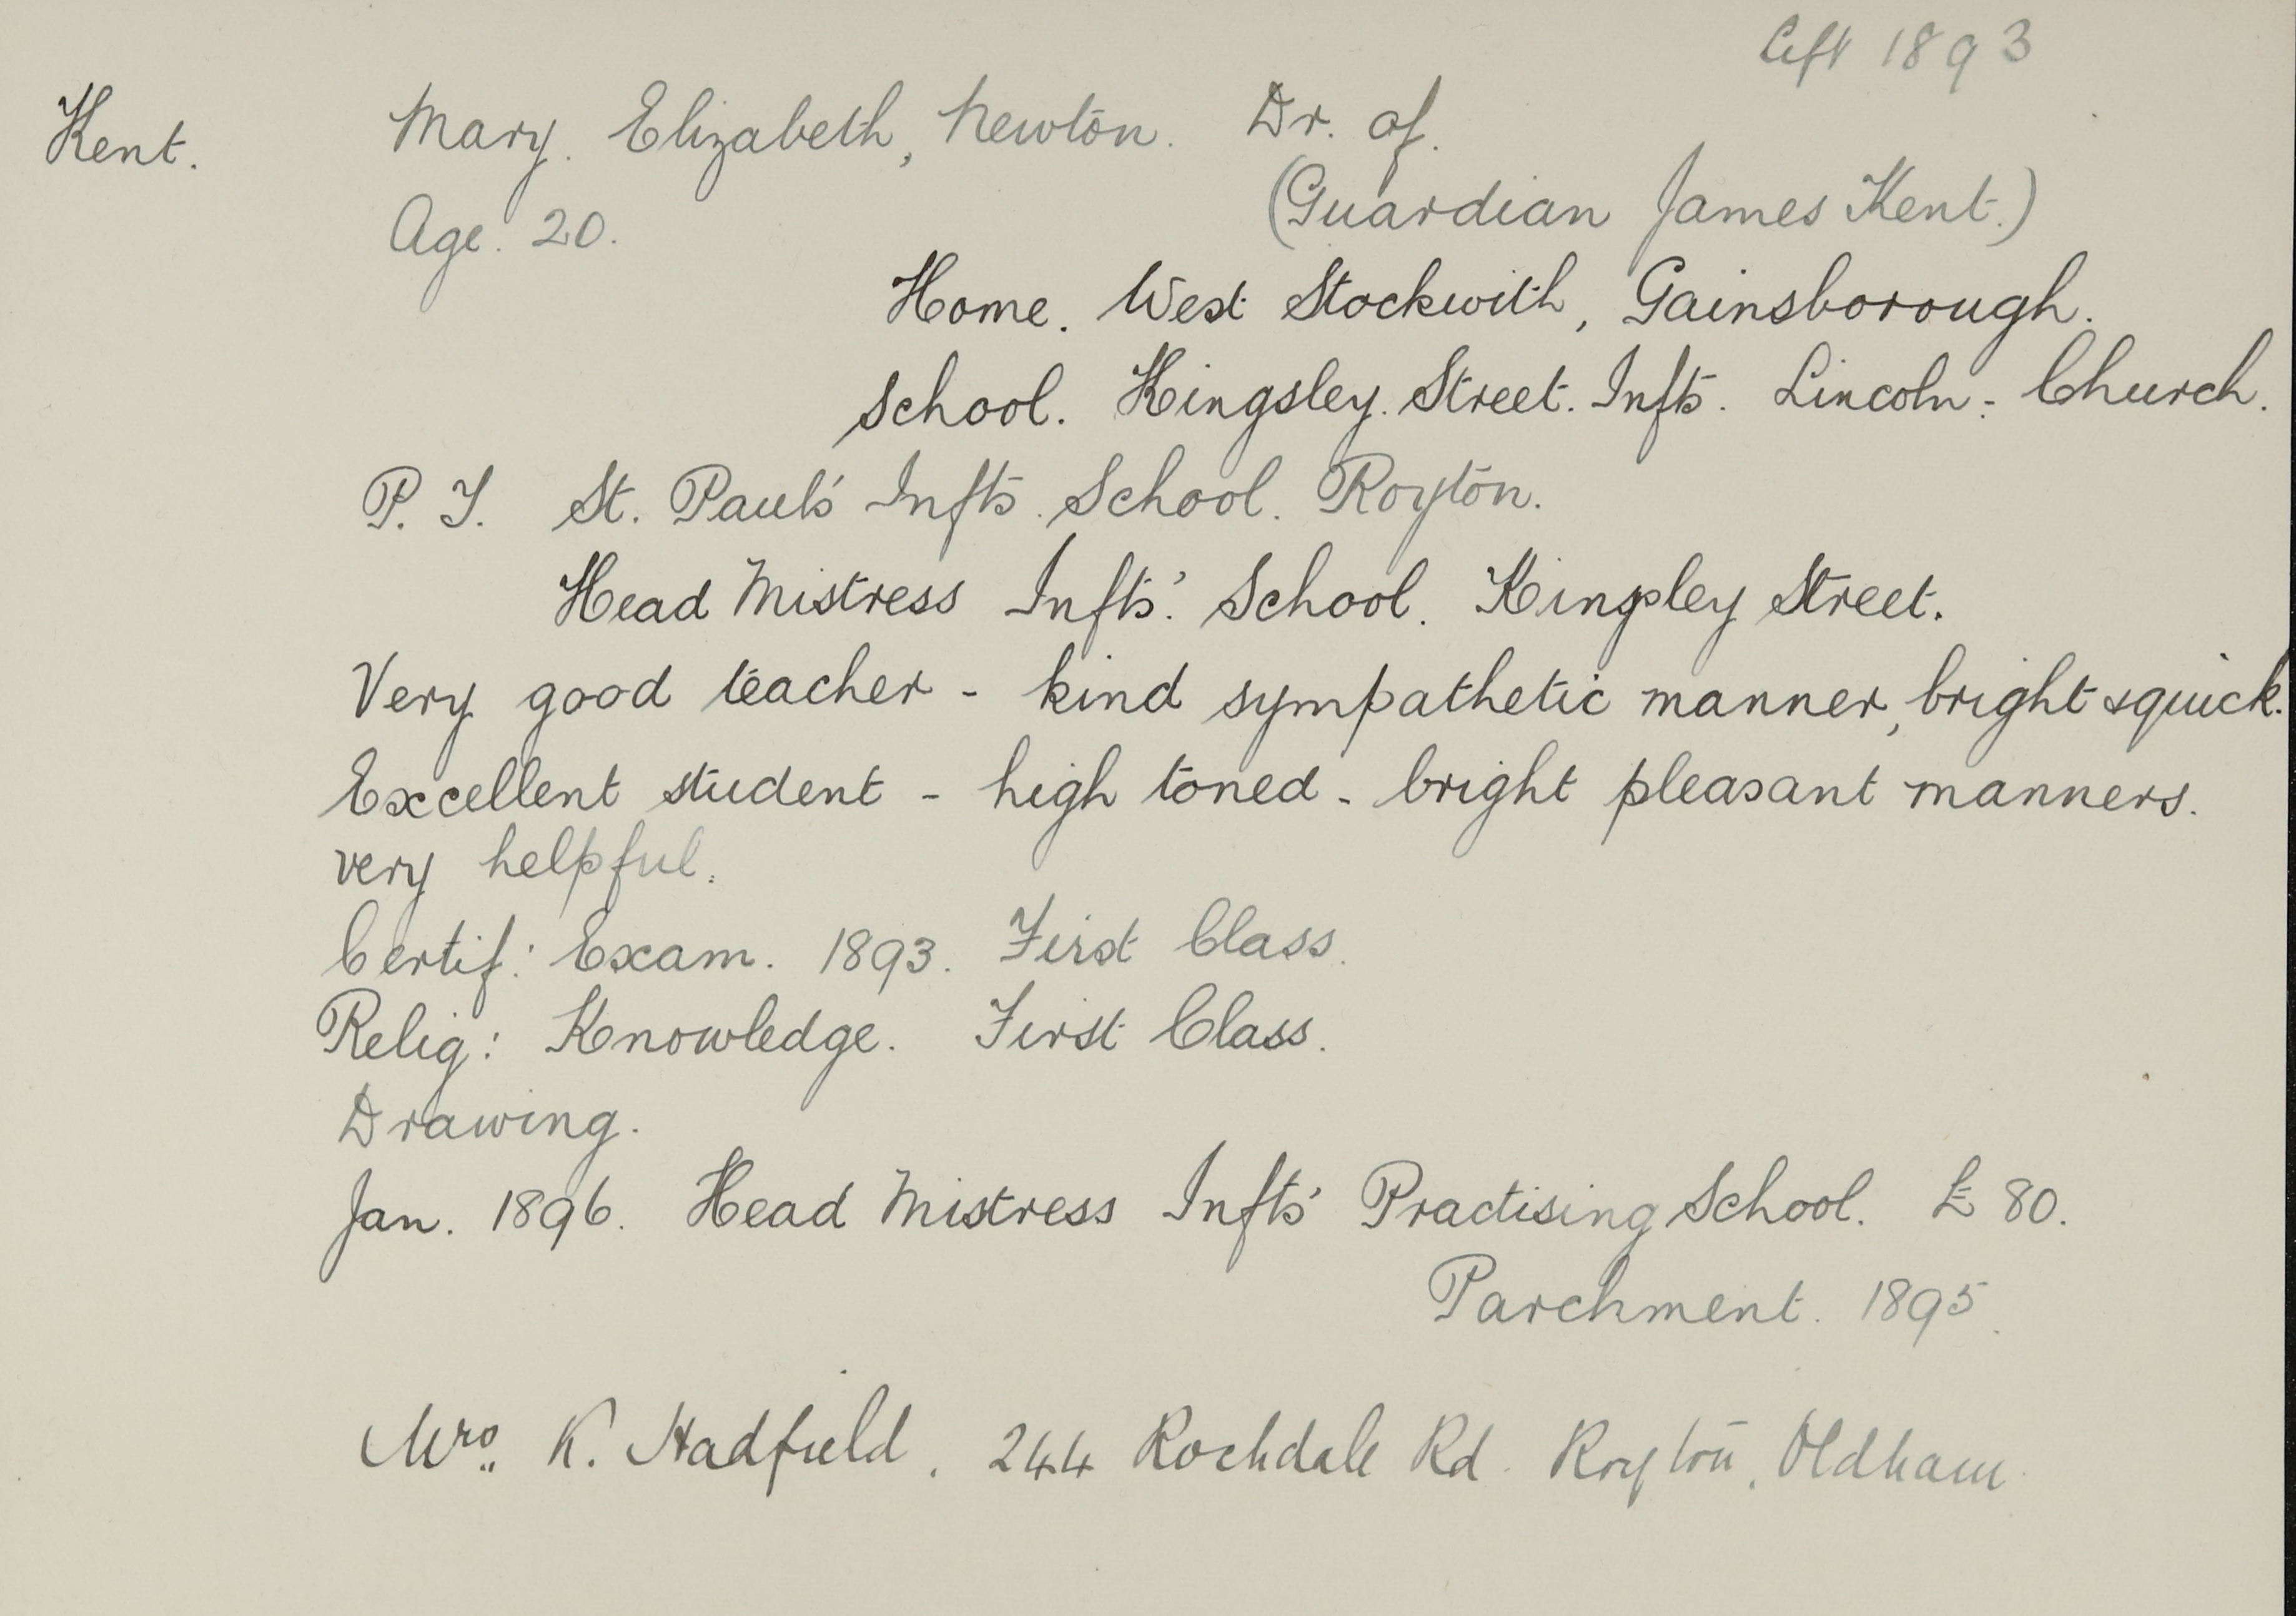 left 1893
Kent. Mary. Elizabeth, Newton. Dr. of.
Age. 20. (Guardian James Kent.)
Home. West Stockwith, Gainsborough.
School. Kingsley. Street. Infts. Lincoln - Church.
P. T. St. Paul's Infts. School. Royton.
Head Mistress Infts'. School. Kingsley Street.
Very good teacher - kind sympathetic manner, bright & quick.
Excellent student - high toned - bright pleasant manners.
very helpful.
Certif: Exam. 1893. First Class.
Relig: Knowledge. First Class.
Drawing.
Jan. 1896. Head Mistress Infts' Practising School. £80.
Parchment. 1895.
Mrs. K. Hadfield. 244 Rochdale Rd. Royton, Oldham